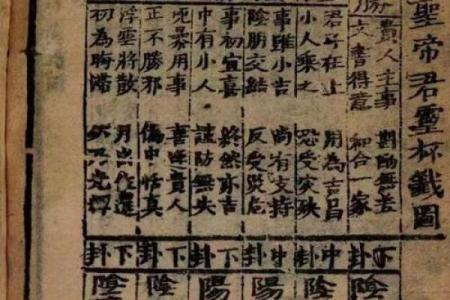 聖帝君靈杯籤圖
勝
貴人主事
無差
文書得意 和合一家
君子在上 用為吉昌
小人乘之 恐受災殃
事雖小吉 尚有支持
陰朋交結 反受災危
事初宜喜 終然亦吉
中有小人 謹防無失
兇暴用事 喜逢貴人
正不勝邪
浮雲將散 月出
初為晦滯
下卦
中卦
下卦
下卦
下卦
陰
陰
陽
陽
陰
陰